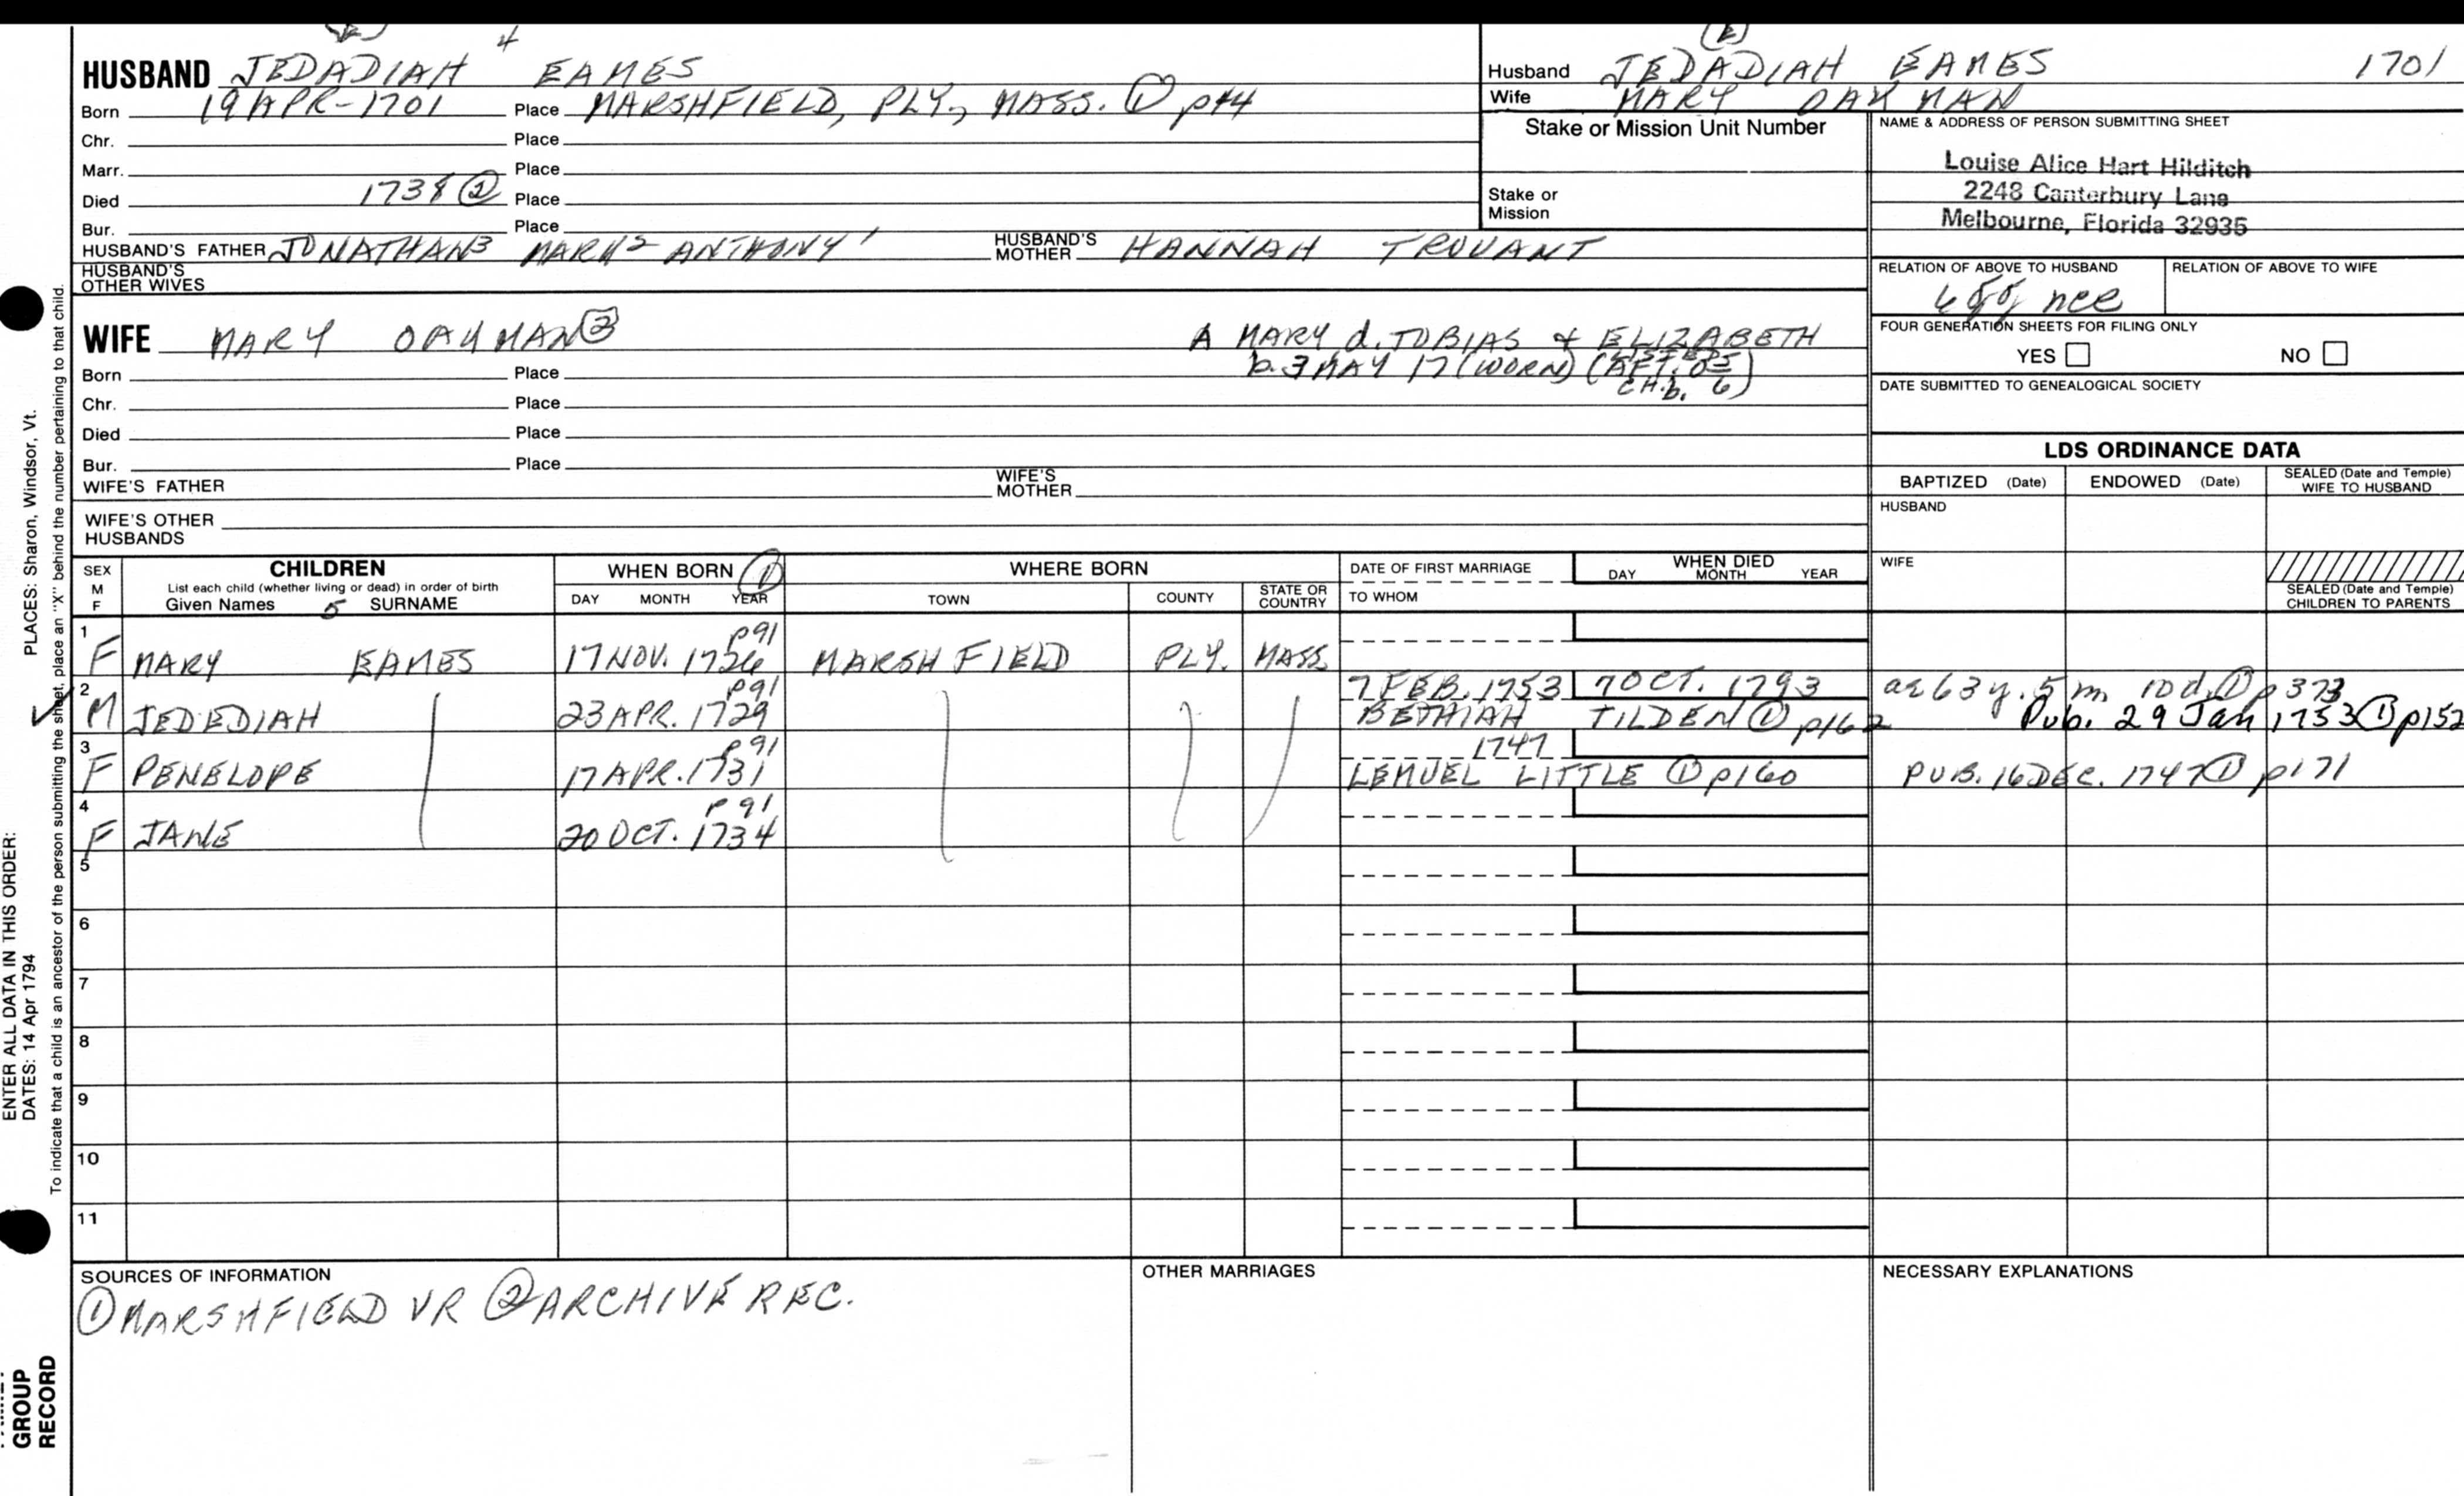 (E) 4
HUSBAND JEDADIAH EAMES
Born 19 APR-1701 Place MARSHFIELD, PLY, MASS. ① p44
Chr. Place
Marr. Place
Died 1738 ② Place
Bur. Place
HUSBAND'S FATHER JONATHAN3 MARK2 ANTHONY1 HUSBAND'S MOTHER HANNAH TROUANT
HUSBAND'S OTHER WIVES
WIFE MARY OAKMAN ② A MARY d. TOBIAS & ELIZABETH
b. 3 MAY 17 (WORN) (LISTED
AFT. CH. b. 05/6)
Born Place
Chr. Place
Died Place
Bur. Place
WIFE'S FATHER WIFE'S MOTHER
WIFE'S OTHER HUSBANDS
(E)
Husband JEDADIAH EAMES 1701
Wife MARY OAKMAN
Stake or Mission Unit Number
Stake or Mission
NAME & ADDRESS OF PERSON SUBMITTING SHEET
Louise Alice Hart Hilditch
2248 Canterbury Lane
Melbourne, Florida 32935
RELATION OF ABOVE TO HUSBAND RELATION OF ABOVE TO WIFE
nce
FOUR GENERATION SHEETS FOR FILING ONLY
YES NO
DATE SUBMITTED TO GENEALOGICAL SOCIETY
LDS ORDINANCE DATA
BAPTIZED (Date) ENDOWED (Date) SEALED (Date and Temple) WIFE TO HUSBAND
HUSBAND
WIFE
SEALED (Date and Temple) CHILDREN TO PARENTS
SEX M F CHILDREN WHEN BORN ① WHERE BORN DATE OF FIRST MARRIAGE WHEN DIED
List each child (whether living or dead) in order of birth
Given Names 5 SURNAME DAY MONTH YEAR TOWN COUNTY STATE OR COUNTRY TO WHOM DAY MONTH YEAR
1 p91
F MARY EAMES 17 NOV. 1726 MARSHFIELD PLY. MASS
2 p91 7 FEB. 1753 7 OCT. 1793 ae 63 y. 5 m 10 d. ① p373
✓ M JEDEDIAH 23 APR. 1729 BETHIAH TILDEN ① p162 Pub. 29 Jan 1753 ① p152
3 p91 1747
F PENELOPE 17 APR. 1731 LEMUEL LITTLE ① p160 PUB. 16 DEC. 1747 ① p171
4 p91
F JANE 20 OCT. 1734
5
6
7
8
9
10
11
SOURCES OF INFORMATION OTHER MARRIAGES NECESSARY EXPLANATIONS
① MARSHFIELD VR ② ARCHIVE REC.
ENTER ALL DATA IN THIS ORDER:
DATES: 14 Apr 1794 PLACES: Sharon, Windsor, Vt.
To indicate that a child is an ancestor of the person submitting the sheet, place an "X" behind the number pertaining to that child.
GROUP
RECORD